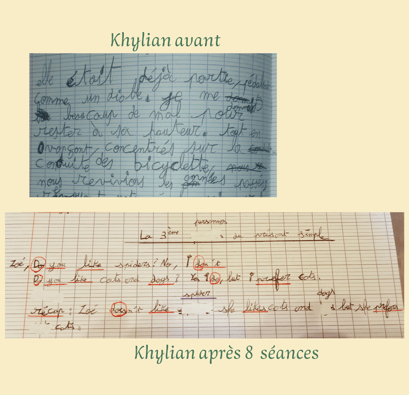 Khylian avant
elle était déjà partie, pédalait
comme un diable. je me
beaucoup de mal pour
rester à sa hauteur. tout en
avançant, concentrés sur la
conduite des bicyclette,
nous revivions les années
personnes
La 3ème : au présent simple
Zoé, Do you like spiders? No, I don't
Do you like cats and dogs? I do, but I prefer cats.
spider dogs
récap: Zoé doesn't like she likes cats and but she prefers
cats.
Khylian après 8 séances